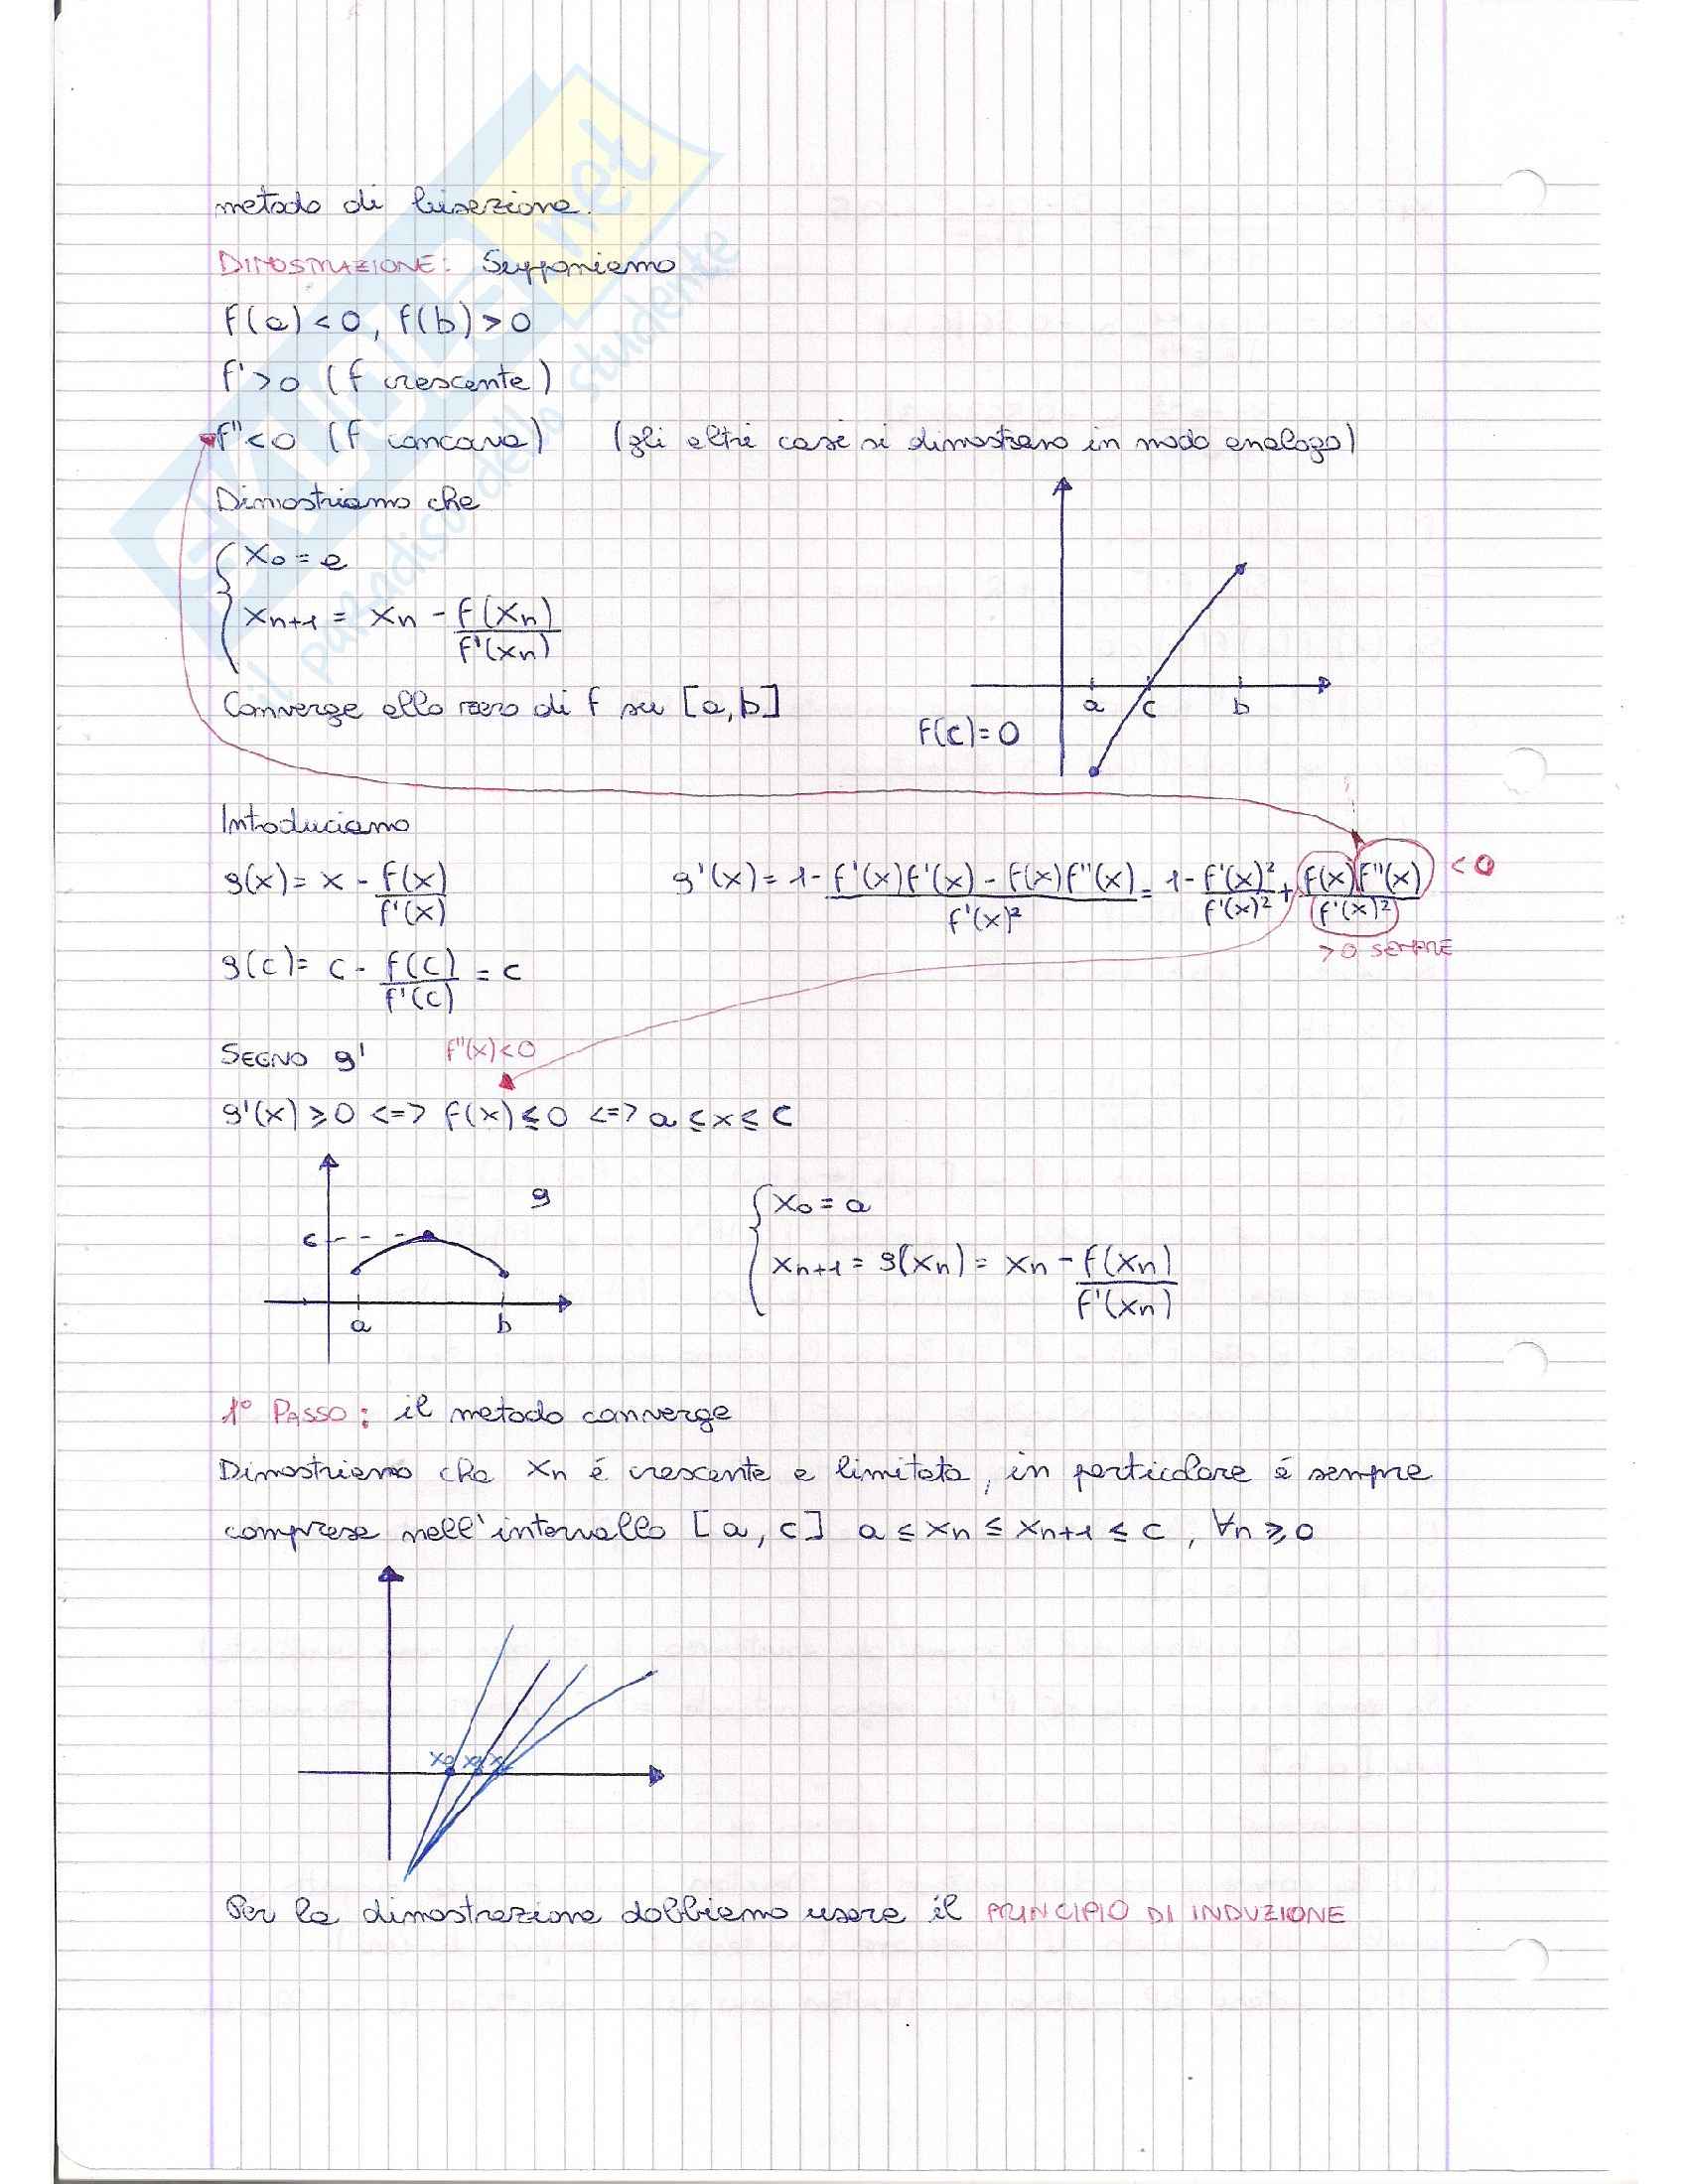 metodo di bisezione.
DIMOSTRAZIONE: Supponiamo
f(a)<0, f(b)>0
f'>0 (f crescente)
f''<0 (f concava) (gli altri casi si dimostrano in modo analogo)
Dimostriamo che
{ x₀ = a
xₙ₊₁ = xₙ - f(xₙ)/f'(xₙ)
Converge allo zero di f su [a,b]
f(c)=0
a c b
Introduciamo
g(x) = x - f(x)/f'(x) g'(x) = 1 - (f'(x)f'(x) - f(x)f''(x))/f'(x)² = 1 - f'(x)²/f'(x)² + f(x)f''(x)/f'(x)² <0
>0 SEMPRE
g(c)= c - f(c)/f'(c) = c
SEGNO g' f''(x)<0
g'(x) ≥ 0 <=> f(x) ≤ 0 <=> a ≤ x ≤ c
g
c
a b
{ x₀ = a
xₙ₊₁ = g(xₙ) = xₙ - f(xₙ)/f'(xₙ)
1° PASSO: il metodo converge
Dimostriamo che xₙ é crescente e limitata, in particolare é sempre
compresa nell'intervallo [a,c] a ≤ xₙ ≤ xₙ₊₁ ≤ c, ∀n ≥ 0
Per la dimostrazione dobbiamo usare il PRINCIPIO DI INDUZIONE
SKUOLA.net
il paradiso dello studente